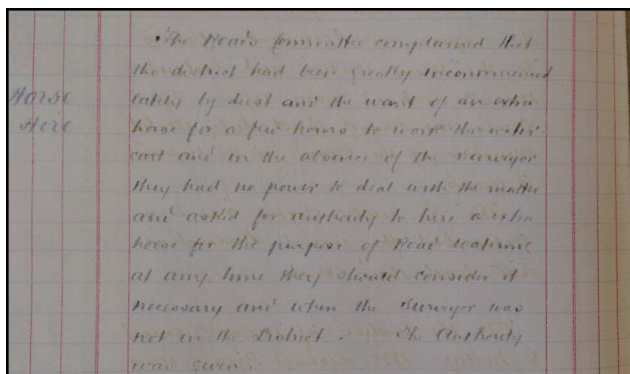 The Roads Committee complained that
the district had been greatly inconvenienced
Horse
lately by dust and the want of an extra
Hire
horse for a few hours to work the water
cart and in the absence of the Surveyor
they had no power to deal with the matter
and asked for authority to hire a extra
horse for the purpose of Road watering
at any time they should consider it
necessary and when the Surveyor was
not in the District. The Authority
was given.